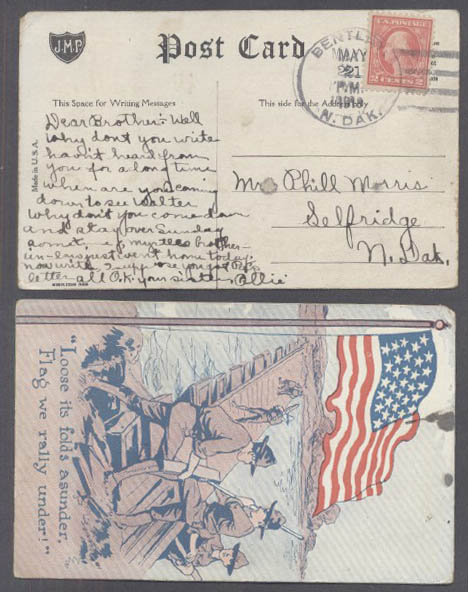 J.M.P.
Post Card
BENTLEY
MAY
21
P.M.
1918
N. DAK.
U.S. POSTAGE
2 CENTS 2
This Space for Writing Messages
This side for the Address Only
Made in U.S.A.
Dear Brother:- Well
Why dont you write
havn't heard from
you for a long time
when are you coming
down to see Walter
Why don't you come down
and stay over Sunday
brother-
in-law just went home today.
now write
letter all O.K. your sister Ollie
Mr Phill Morris
Selfridge
N. Dak.
"Loose its folds asunder,
Flag we rally under!"